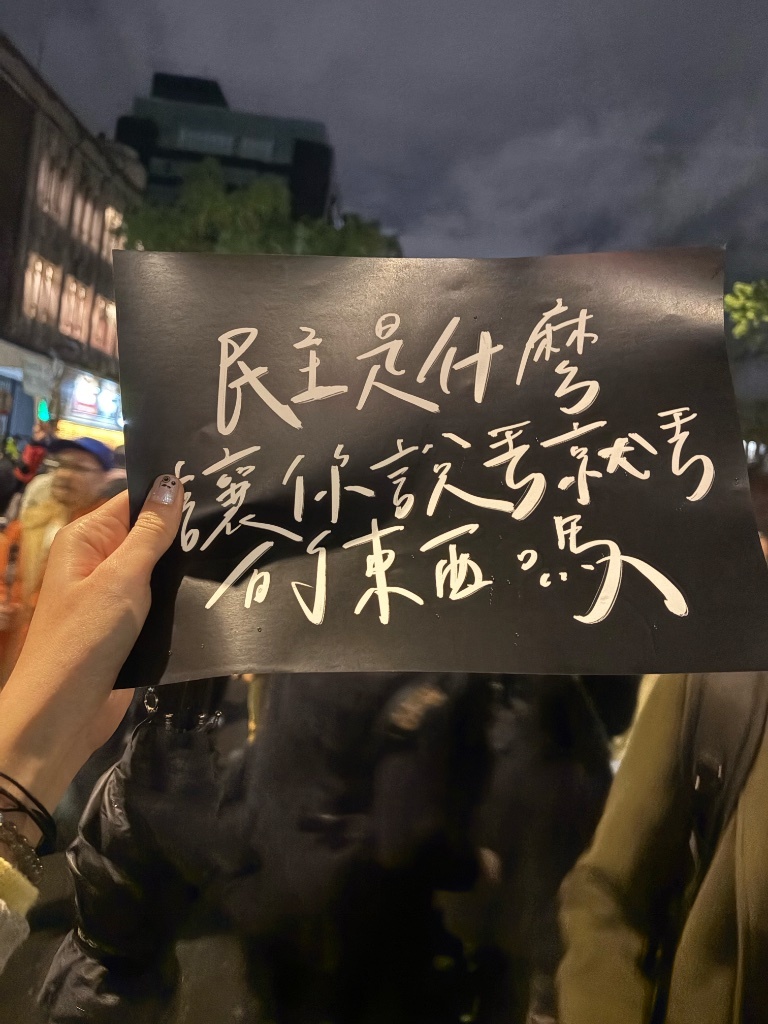 民主是什麼
讓你說丟就丟
的東西嗎